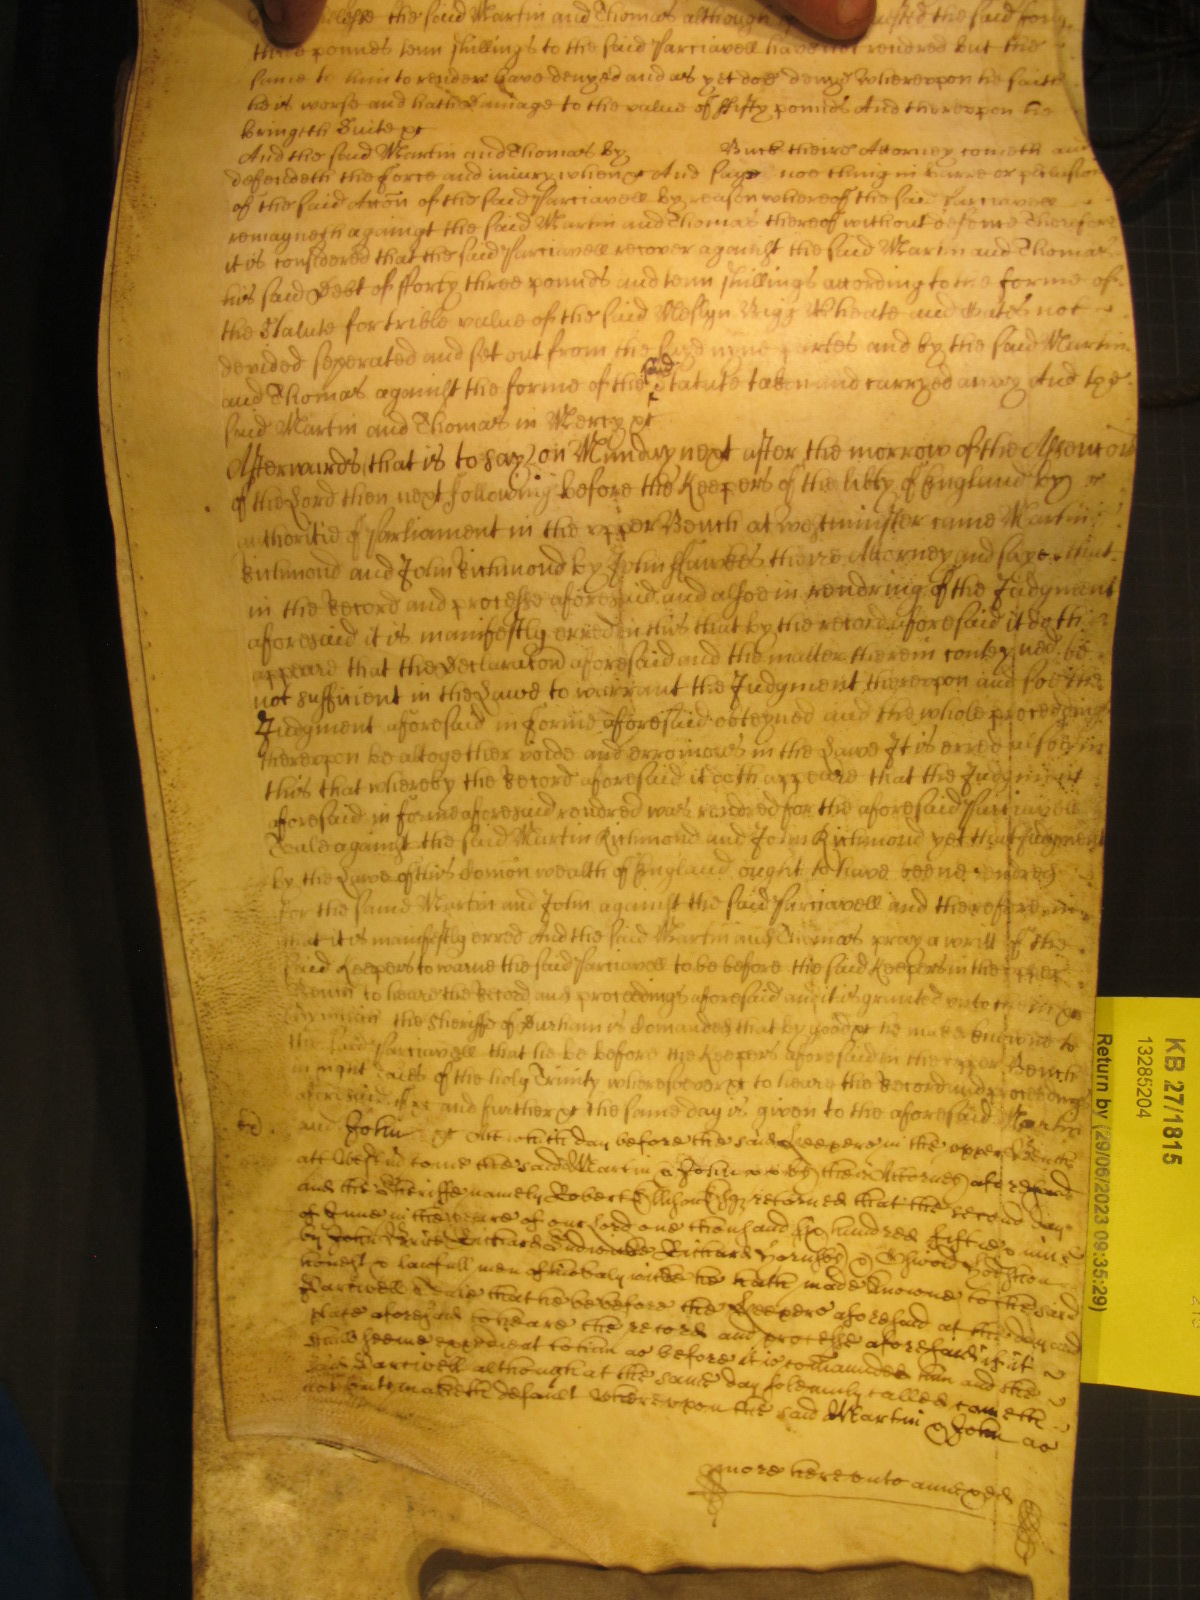 the said Martin and Thomas although the said forty
three pounds tenn shillings to the said Parciavell have not rendred but the
same to him to render have denyed and as yet doe deny Whereupon he saith
he is worse and hath damage to the value of ffifty pounds And thereupon he
bringeth Suite &c
And the said Martin and Thomas by Buck theire Attorney cometh and
defendeth the force and injury when &c And saye noe thing in barre or
of the said Accon of the said Parciavell by reason whereof the said Parciavell
remayneth against the said Martin and Thomas thereof without defence Therefore
it is considered that the said Parciavell recover against the said Martin and Thomas
his said Debt of fforty three pounds and tenn shillings according to the forme of
the Statute for trible value of the said Rigg Wheate and Oates not
devided seperated and set out from the said nyne partes and by the said Martin
and Thomas against the forme of the said Statute taken and carryed away And the
said Martin and Thomas in Mercy &c
Afterwards that is to say on Munday next after the morrow of the Ascencion
of the Lord then next following before the Keepers of the libty of England by
authoritie of Parliament in the upper Bench at Westminster came Martin
Richmond and John Richmond by John Hawkes theire Attorney and saye that
in the Record and processe aforesaid and alsoe in rendring of the Judgment
aforesaid it is manifestly erred in this that by the record aforesaid it doth
appeare that the Declaracon aforesaid and the matter therein conteyned be
not sufficient in the Lawe to warrant the Judgment thereupon and soe the
Judgment aforesaid in forme aforesaid obteyned and the whole proceedings
thereupon be altogether voide and erronious in the Lawe It is erred alsoe in
this that whereby the Record aforesaid it doth appeare that the Judgment
aforesaid in forme aforesaid rendred was rendred for the aforesaid Parciavell
against the said Martin Richmond and John Richmond yet that Judgment
by the Lawe of this Comon wealth of England ought to have beene rendred
for the same Martin and John against the said Parciavell and therefore in
that it is manifestly erred And the said Martin and Thomas pray a writt of the
said Keepers to warne the said Parciavell to be before the said Keepers in the upper
Bench to heare the Record and proceedings aforesaid and it is granted unto them &c
the Sheriffe of Durham is Comanded that by good &c he make knowne to
the said Parciavell that he be before the Keepers aforesaid in the upper Bench
in eight daies of the holy Trinity wheresoever &c to heare the Record and proceedings
aforesaid if &c and further &c the same day is given to the aforesaid Martin
and John &c Att which day before the said Keepers in the upper Bench
att Westmr come the said Martin & John by their Attorney aforesaid
and the Sheriffe namely Robert Esqr retorned that the second day
of June in the yeare of our Lord one thousand six hundred fiftie & nine
by John Richard Richard Hornsby &
honest & lawfull men of his baliwicke he hath made knowne to the said
Parcivell that he be before the Keepers aforesaid at the day and
place aforesaid to heare the record and processe aforesaid if it
shall seeme expedient to him as before it is commanded him and the
said Parcivell although at the same day solemnly called cometh
not but maketh default Whereupon the said Martin & John as
more hereunto annexed
KB 27/1815
13285204
Return by (29/06/2023 09:35:29)